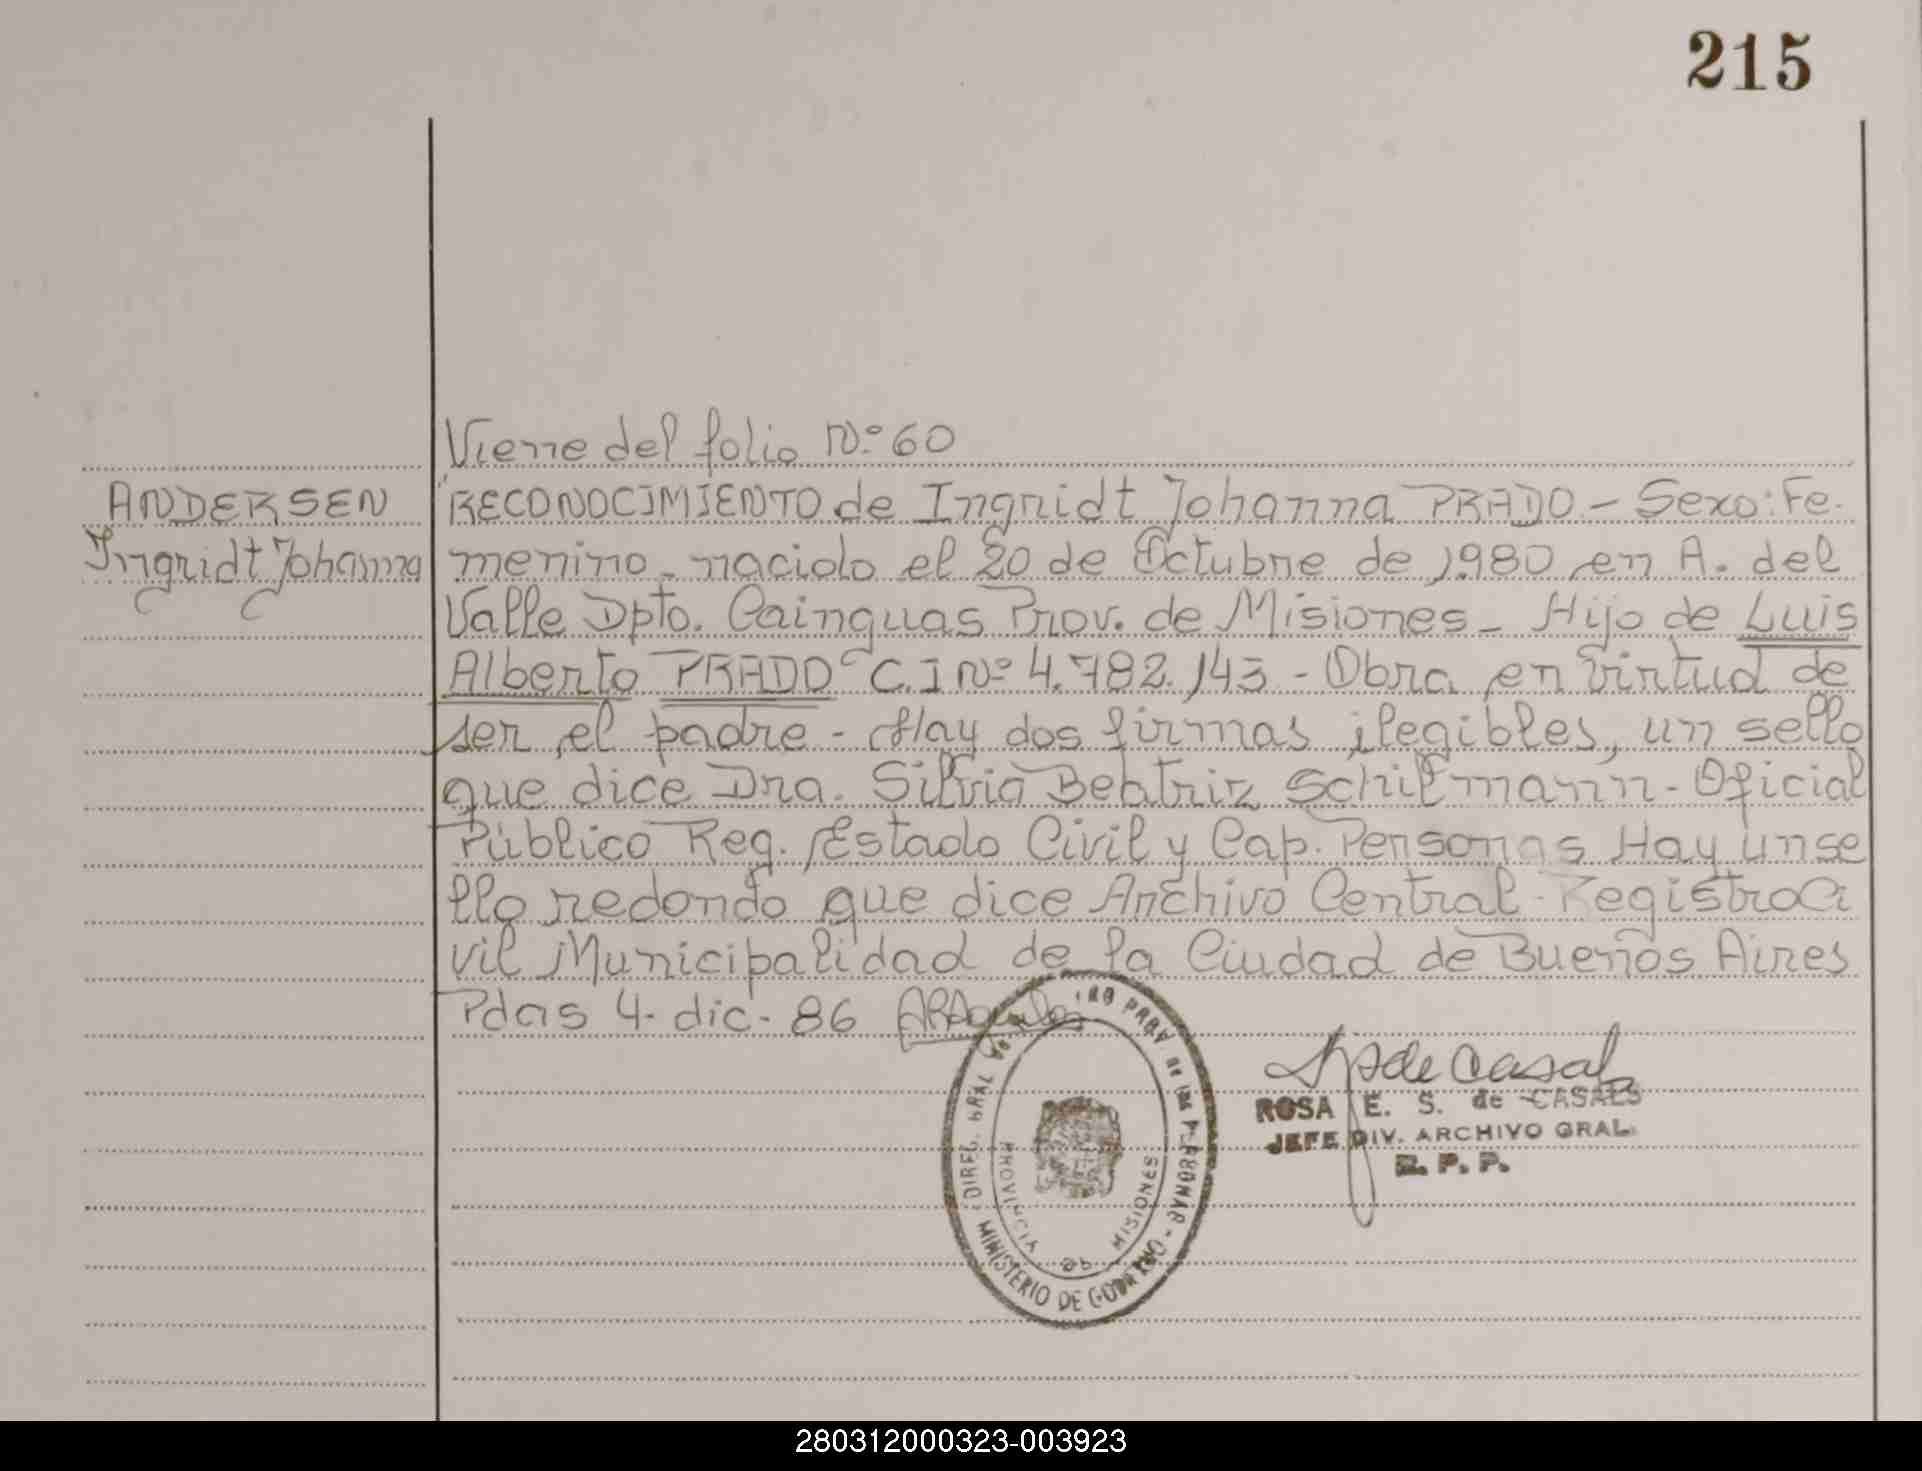 215
Viene del folio Nº 60
ANDERSEN
Ingridt Johanna
RECONOCIMIENTO de Ingridt Johanna PRADO - Sexo: Fe-
menino - nacido el 20 de Octubre de 1.980 en A. del
Valle Dpto. Cainguas Prov. de Misiones - Hijo de Luis
Alberto PRADO C.I Nº 4.782.143 - Obra en virtud de
ser el padre - Hay dos firmas ilegibles, un sello
que dice Dra. Silvia Beatriz Schifmann - Oficial
Público Reg. Estado Civil y Cap. Personas Hay un se
llo redondo que dice Archivo Central - Registro Ci
vil Municipalidad de la Ciudad de Buenos Aires
Pdas 4. dic. - 86
de Casal
ROSA E. S. de CASALS
JEFE DIV. ARCHIVO GRAL.
R. P. P.
DIREC. GRAL de las PERSONAS - MINISTERIO DE GOBIERNO
PROVINCIA DE MISIONES
280312000323-003923